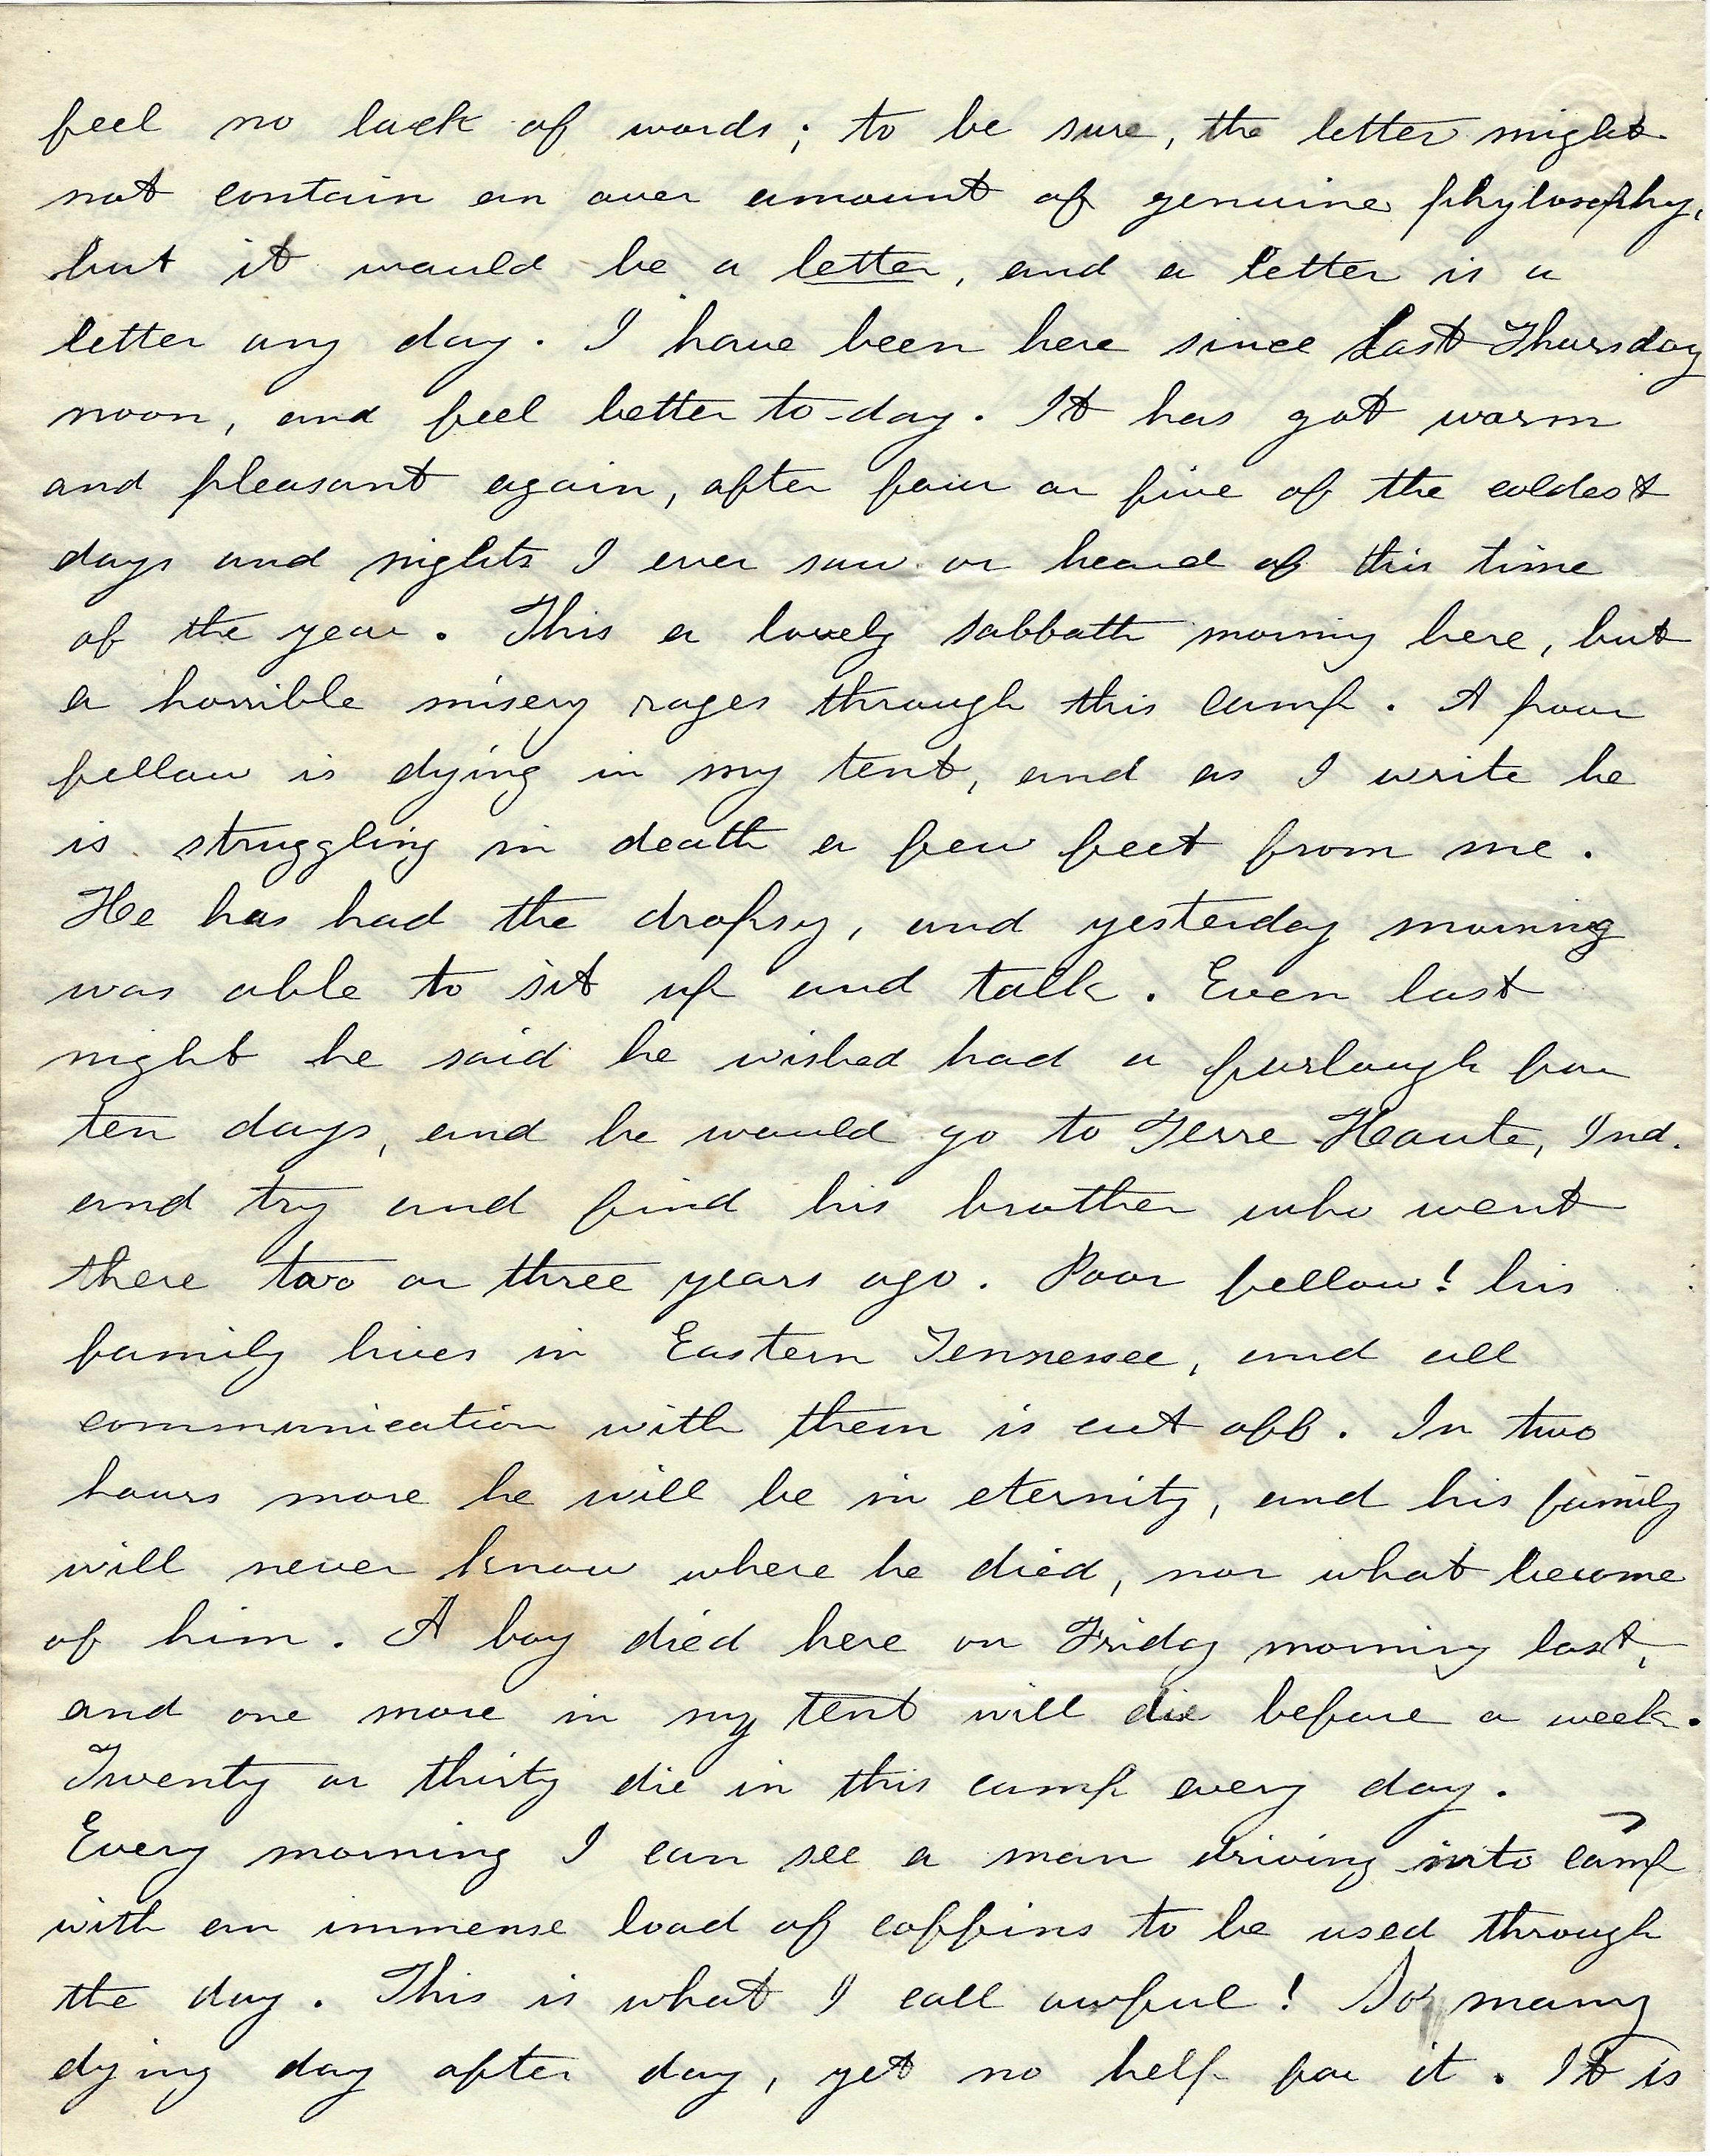 feel no lack of words; to be sure, the letter might
not contain an over amount of genuine phylosophy,
but it would be a letter, and a letter is a
letter any day. I have been here since last Thursday
noon, and feel better to-day. It has got warm
and pleasant again, after four or five of the coldest
days and nights I ever saw or heard of this time
of the year. This a lovely sabbath morning here, but
a horrible misery rages through this camp. A poor
fellow is dying in my tent, and as I write he
is struggling in death a few feet from me.
He has had the dropsy, and yesterday morning
was able to sit up and talk. Even last
night he said he wished had a furlough for
ten days, and he would go to Terre Haute, Ind.
and try and find his brother who went
there two or three years ago. Poor fellow! his
family lives in Eastern Tennessee, and all
communication with them is cut off. In two
hours more he will be in eternity, and his family
will never know where he died, nor what become
of him. A boy died here on Friday morning last,
and one more in my tent will die before a week.
Twenty or thirty die in this camp every day.
Every morning I can see a man driving into camp
with an immense load of coffins to be used through
the day. This is what I call awful! So many
dying day after day, yet no help for it. It is